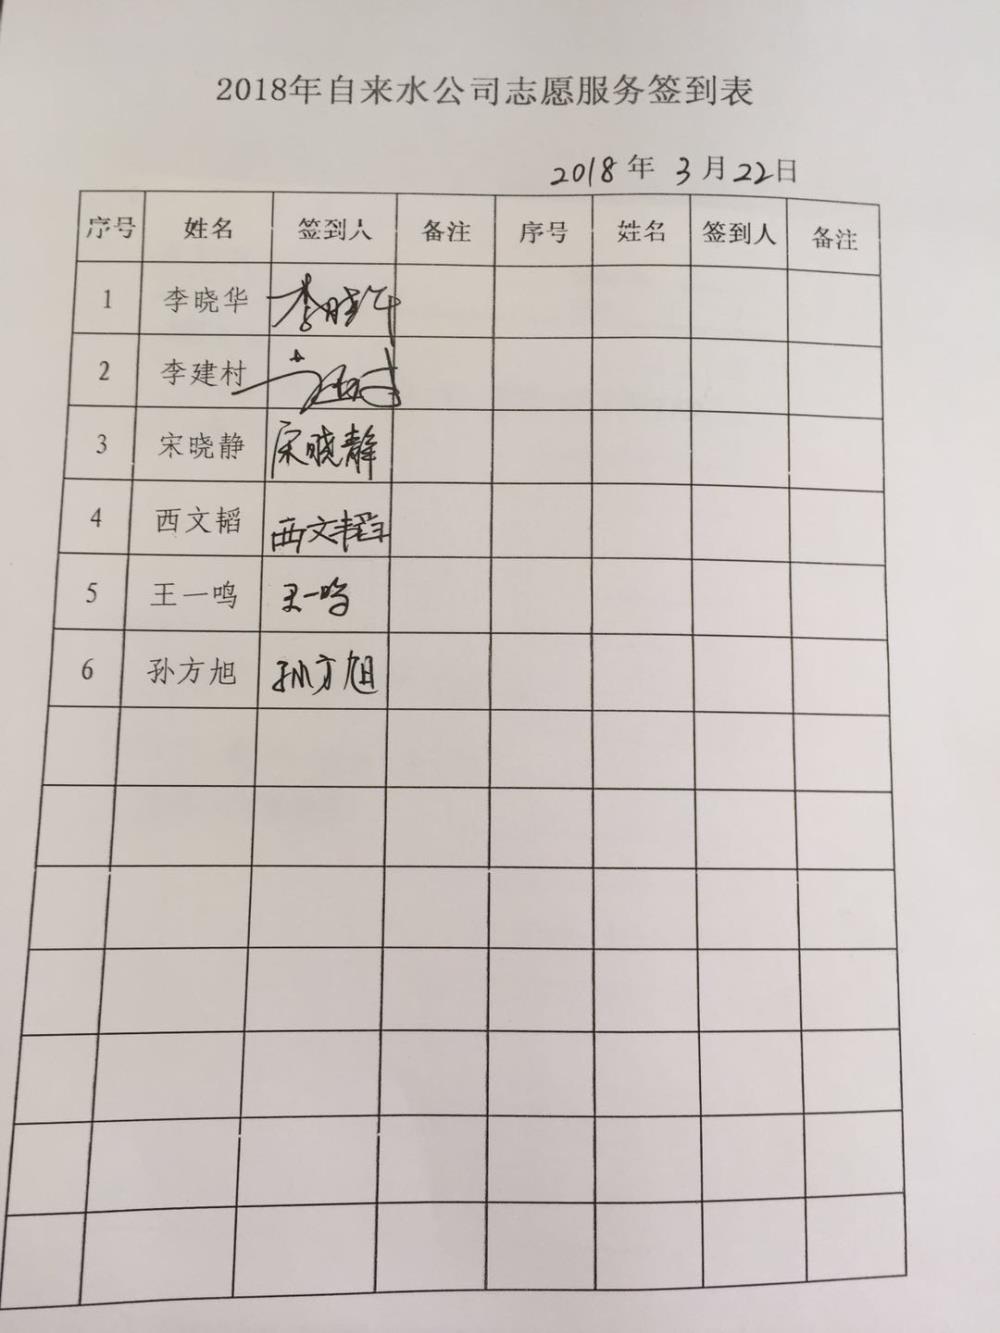 2018年自来水公司志愿服务签到表
2018年 3月22日
序号 姓名 签到人 备注 序号 姓名 签到人 备注
1 李晓华 李晓华
2 李建村 李建村
3 宋晓静 宋晓静
4 西文韬 西文韬
5 王一鸣 王一鸣
6 孙方旭 孙方旭